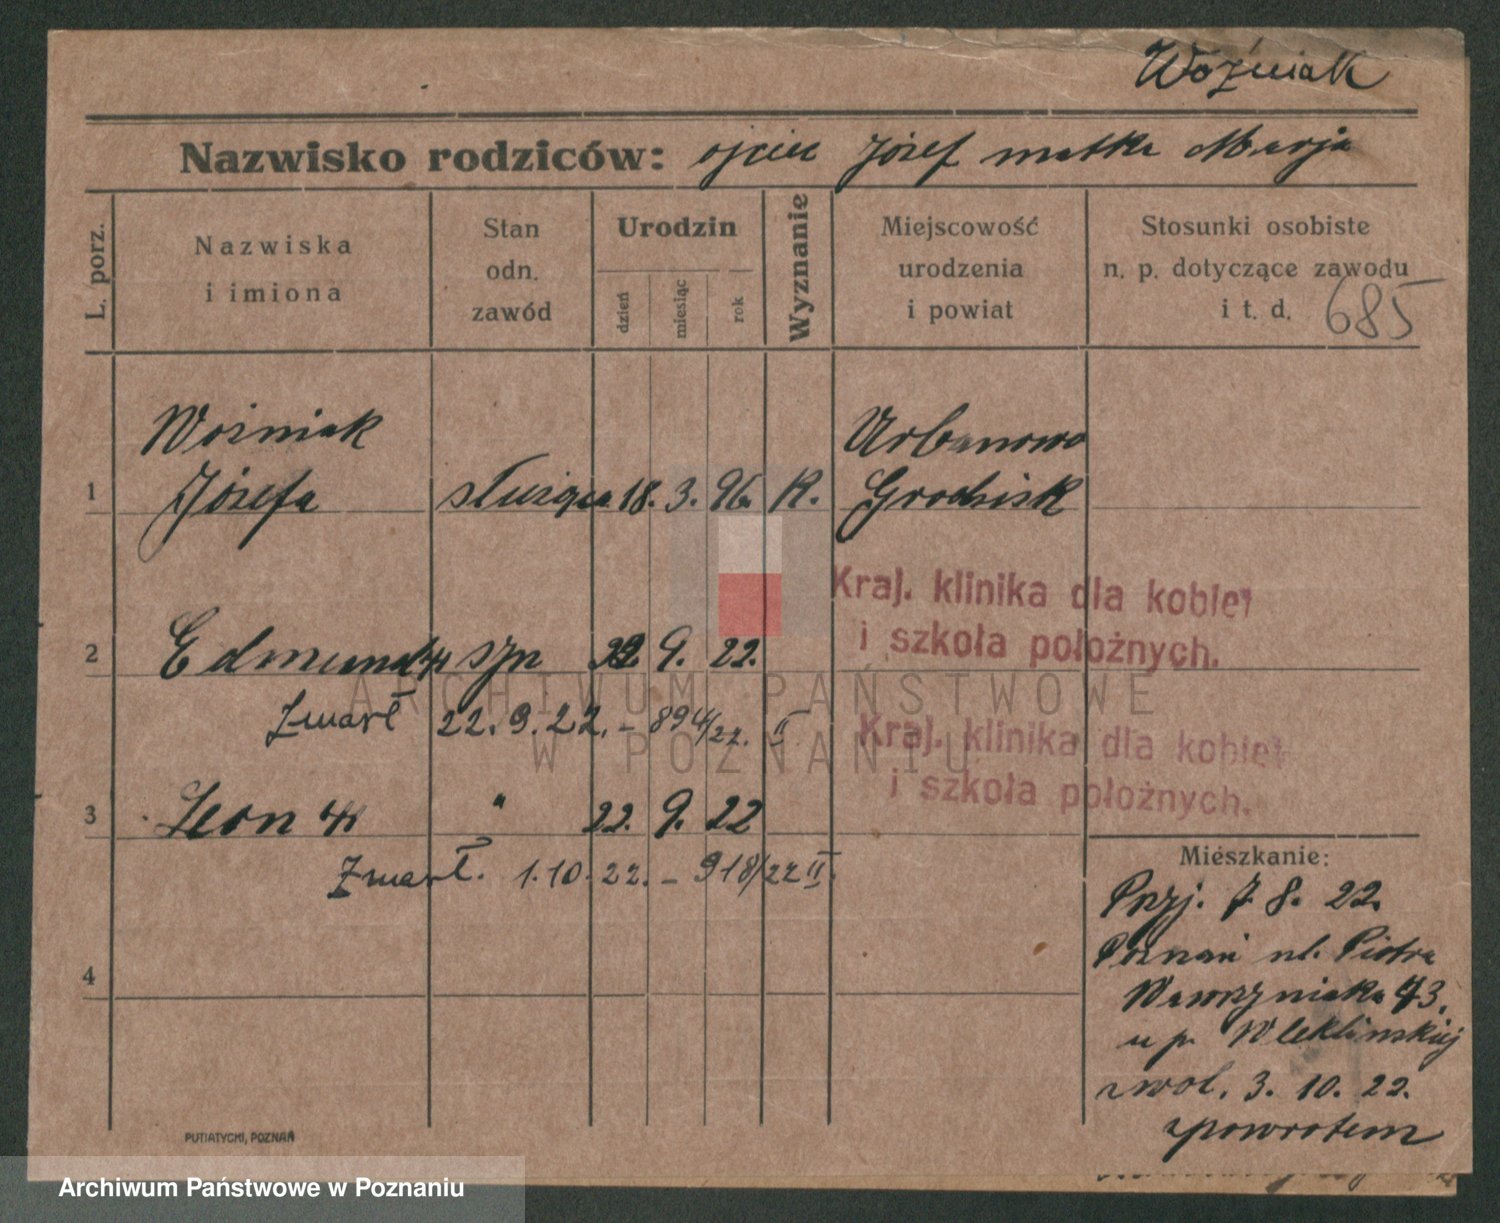 Woźniak
Nazwisko rodziców: ojciec Józef matka Marja
L. porz.
Nazwiska
i imiona
Stan
odn.
zawód
Urodzin
dzień
miesiąc
rok
Wyznanie
Miejscowość
urodzenia
i powiat
Stosunki osobiste
n. p. dotyczące zawodu
i t. d. 685
Woźniak Urbanowo
1 Józefa służąca 18. 3. 96. R. Grodzisk
Kraj. klinika dla kobiet
i szkoła położnych.
2 Edmund syn 22. 9. 22.
Zmarł 22. 9. 22. - 894/22. II
Kraj. klinika dla kobiet
i szkoła położnych.
3 Leon " 22. 9. 22
Zmarł. 1. 10. 22. - 918/22 II.
4
Mieszkanie:
Przj. 7. 8. 22.
Poznań ul. Piotra
Wawrzyniaka 43.
u p.
zwol. 3. 10. 22.
zpowrotem
PUTIATYCKI, POZNAŃ
ARCHIWUM PAŃSTWOWE
W POZNANIU
Archiwum Państwowe w Poznaniu